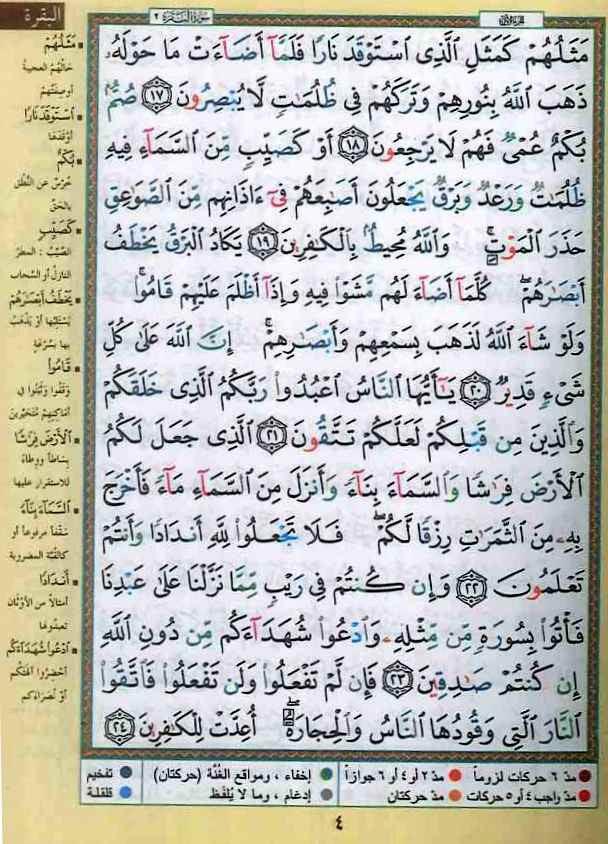 البقرة
سورة البقرة ٢
الجزء الأول
مَثَلُهُمْ كَمَثَلِ ٱلَّذِى ٱسْتَوْقَدَ نَارًا فَلَمَّآ أَضَآءَتْ مَا حَوْلَهُۥ
ذَهَبَ ٱللَّهُ بِنُورِهِمْ وَتَرَكَهُمْ فِى ظُلُمَٰتٍ لَّا يُبْصِرُونَ ١٧ صُمٌّۢ
بُكْمٌ عُمْىٌ فَهُمْ لَا يَرْجِعُونَ ١٨ أَوْ كَصَيِّبٍ مِّنَ ٱلسَّمَآءِ فِيهِ
ظُلُمَٰتٌ وَرَعْدٌ وَبَرْقٌ يَجْعَلُونَ أَصَٰبِعَهُمْ فِىٓ ءَاذَانِهِم مِّنَ ٱلصَّوَٰعِقِ
حَذَرَ ٱلْمَوْتِ ۚ وَٱللَّهُ مُحِيطٌۢ بِٱلْكَٰفِرِينَ ١٩ يَكَادُ ٱلْبَرْقُ يَخْطَفُ
أَبْصَٰرَهُمْ ۖ كُلَّمَآ أَضَآءَ لَهُم مَّشَوْا۟ فِيهِ وَإِذَآ أَظْلَمَ عَلَيْهِمْ قَامُوا۟ ۚ
وَلَوْ شَآءَ ٱللَّهُ لَذَهَبَ بِسَمْعِهِمْ وَأَبْصَٰرِهِمْ ۚ إِنَّ ٱللَّهَ عَلَىٰ كُلِّ
شَىْءٍ قَدِيرٌ ٢٠ يَٰٓأَيُّهَا ٱلنَّاسُ ٱعْبُدُوا۟ رَبَّكُمُ ٱلَّذِى خَلَقَكُمْ
وَٱلَّذِينَ مِن قَبْلِكُمْ لَعَلَّكُمْ تَتَّقُونَ ٢١ ٱلَّذِى جَعَلَ لَكُمُ
ٱلْأَرْضَ فِرَٰشًا وَٱلسَّمَآءَ بِنَآءً وَأَنزَلَ مِنَ ٱلسَّمَآءِ مَآءً فَأَخْرَجَ
بِهِۦ مِنَ ٱلثَّمَرَٰتِ رِزْقًا لَّكُمْ ۖ فَلَا تَجْعَلُوا۟ لِلَّهِ أَندَادًا وَأَنتُمْ
تَعْلَمُونَ ٢٢ وَإِن كُنتُمْ فِى رَيْبٍ مِّمَّا نَزَّلْنَا عَلَىٰ عَبْدِنَا
فَأْتُوا۟ بِسُورَةٍ مِّن مِّثْلِهِۦ وَٱدْعُوا۟ شُهَدَآءَكُم مِّن دُونِ ٱللَّهِ
إِن كُنتُمْ صَٰدِقِينَ ٢٣ فَإِن لَّمْ تَفْعَلُوا۟ وَلَن تَفْعَلُوا۟ فَٱتَّقُوا۟
ٱلنَّارَ ٱلَّتِى وَقُودُهَا ٱلنَّاسُ وَٱلْحِجَارَةُ ۖ أُعِدَّتْ لِلْكَٰفِرِينَ ٢٤
مَثَلُهُمْ
حالُهُم العجيبة
أو صِفَتُهم
ٱسْتَوْقَدَ نَارًا
أوْقَدَها
بُكْمٌ
خُرْسٌ عن النُّطْق
بالحَقّ
كَصَيِّبٍ
الصَّيِّبُ : المطَرُ
النازِلُ أو السَّحاب
يَخْطَفُ أَبْصَٰرَهُمْ
يَسْتَلِبُها أو يَذْهَبُ
بها بسُرْعَةٍ
قَامُوا۟
وَقَفُوا وثَبَتُوا في
أماكِنِهِمْ مُتَحَيِّرينَ
ٱلْأَرْضَ فِرَٰشًا
بِساطاً وَوِطاءً
للاستقرار عليها
ٱلسَّمَآءَ بِنَآءً
سَقْفاً مرفوعاً أو
كالقُبَّة المضروبة
أَندَادًا
أمثالاً من الأوْثان
تعبدُونها
ٱدْعُوا۟ شُهَدَآءَكُم
أحْضِرُوا آلهَتَكُم
أوْ نُصَرَاءكم
مدّ ٦ حركات لزوماً
مدّ ٢ أو ٤ أو ٦ جوازاً
إخفاء ، ومواقع الغُنَّة (حركتان)
تفخيم
مدّ واجب ٤ أو ٥ حركات
مدّ حركتان
إدغام ، وما لا يُلفَظ
قلقلة
٤